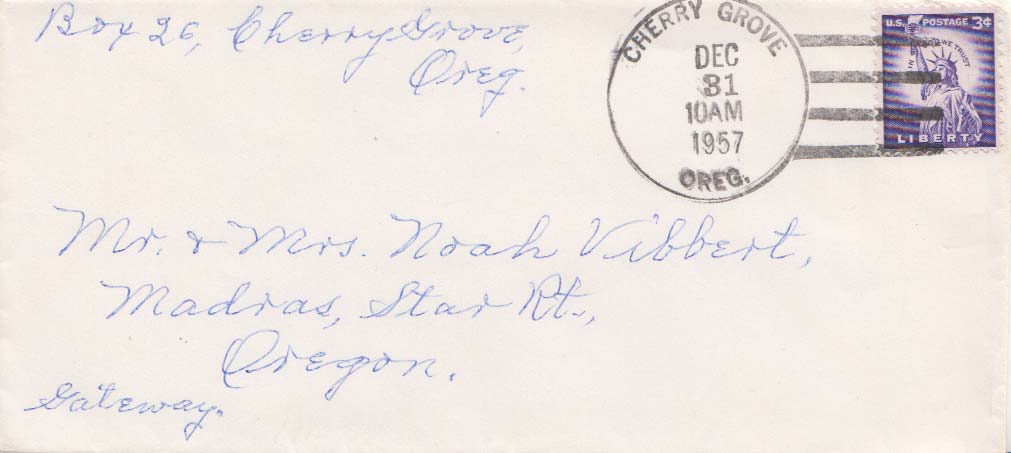 Box 26, Cherry Grove,
Oreg.
CHERRY GROVE
DEC
31
10AM
1957
OREG.
U.S. POSTAGE 3¢
IN GOD WE TRUST
LIBERTY
Mr. & Mrs. Noah Vibbert,
Madras, Star Rt.,
Oregon.
Gateway.